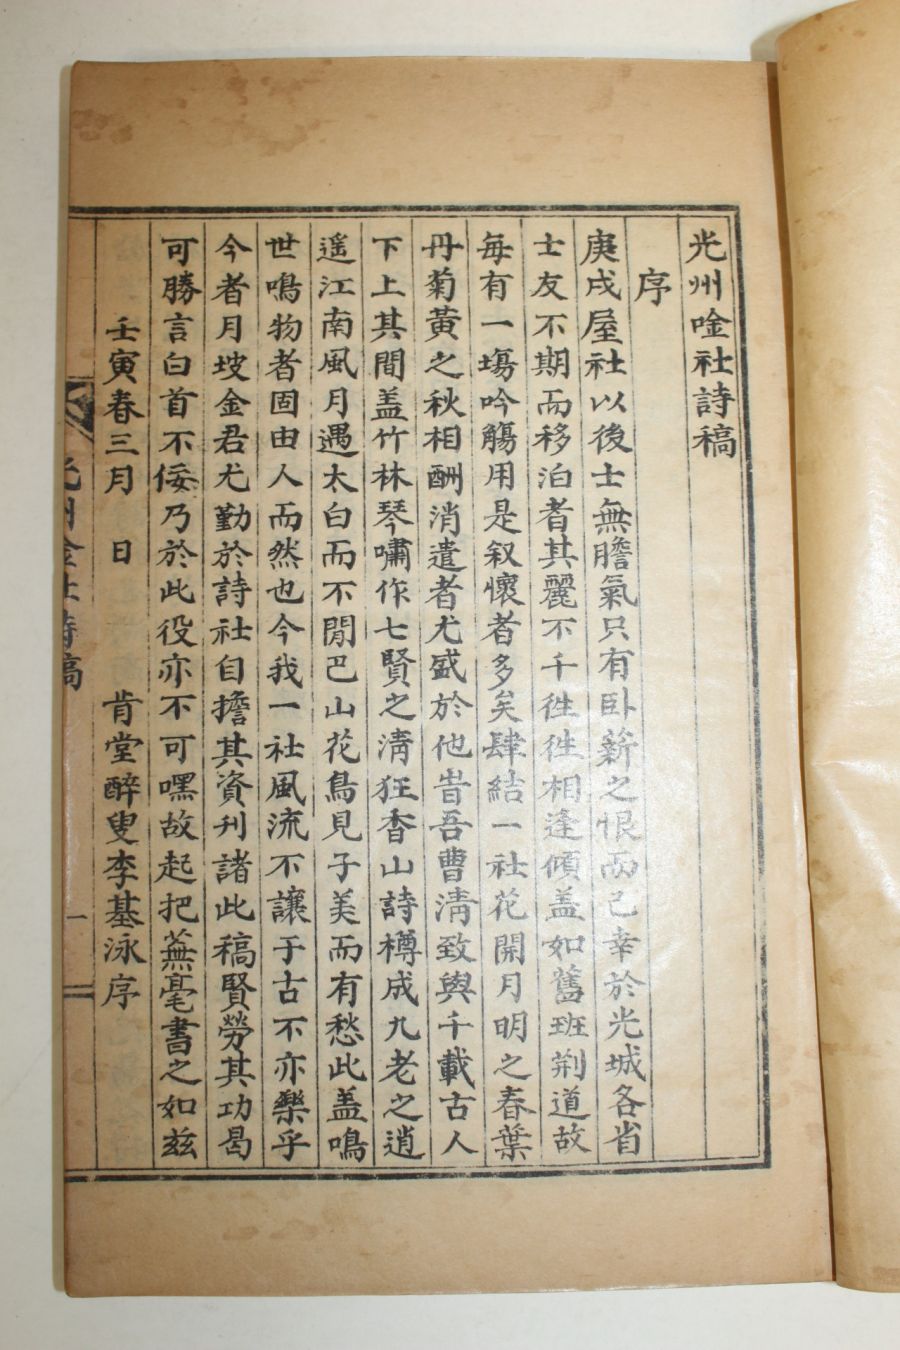 光州唫社詩稿
序
庚戌屋社以後士無膽氣只有臥薪之恨而已幸於光城各省
士友不期而移泊者其麗不千徃徃相逢傾盖如舊班荆道故
每有一塲吟觴用是叙懷者多矣肆結一社花開月明之春葉
丹菊黃之秋相酬消遣者尤盛於他昔吾曹淸致與千載古人
下上其間盖竹林琴嘯作七賢之淸狂香山詩樽成九老之逍
遥江南風月遇太白而不閒巴山花鳥見子美而有愁此盖鳴
世鳴物者固由人而然也今我一社風流不讓于古不亦樂乎
今者月坡金君尤勤於詩社自擔其資刋諸此稿賢勞其功曷
可勝言白首不佞乃於此役亦不可嘿故起把蕪毫書之如玆
壬寅春三月　日　肯堂醉叟李基泳序
光州唫社詩稿　一